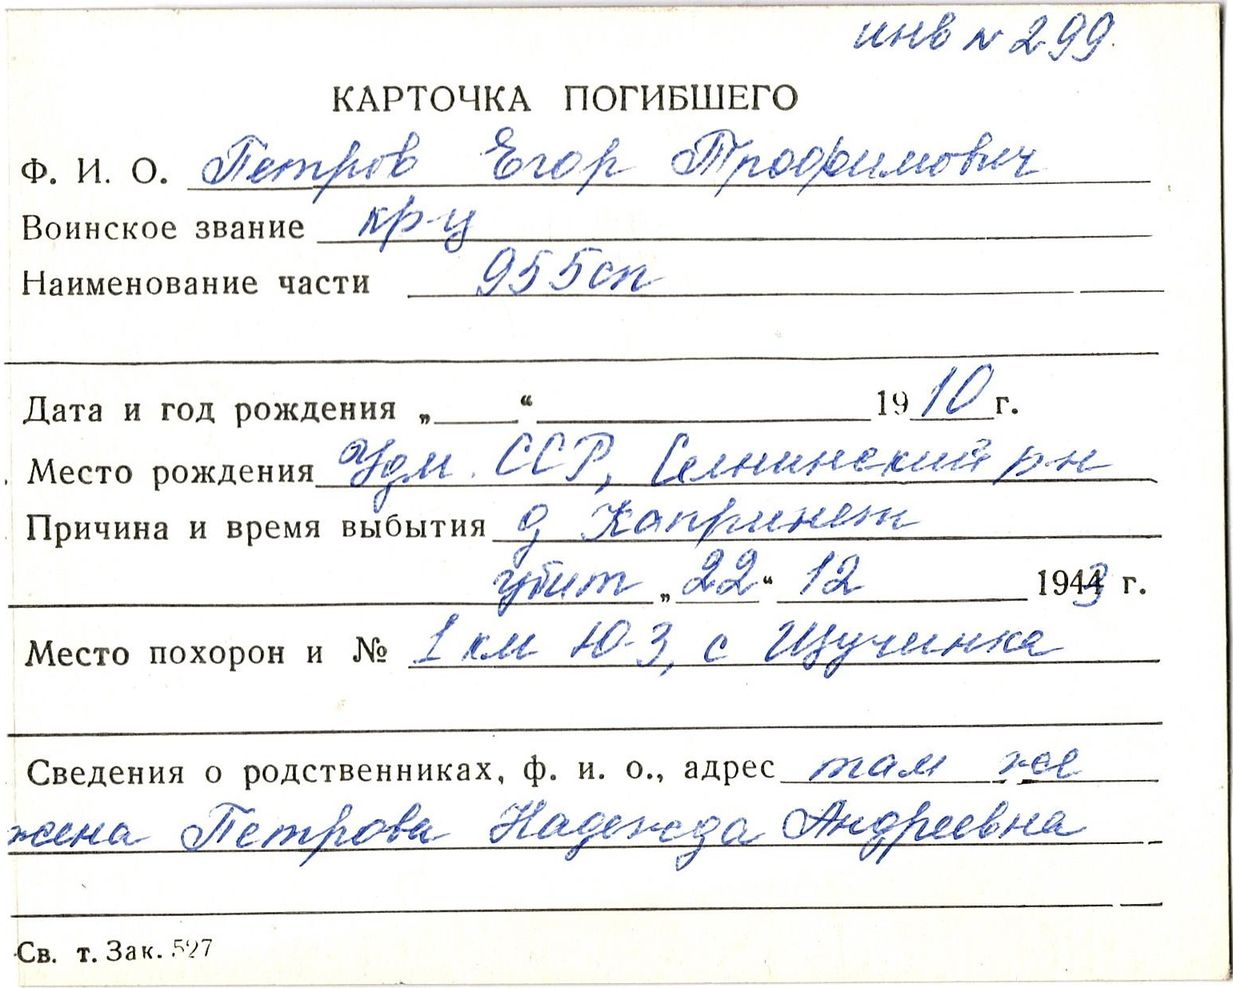 инв № 299
КАРТОЧКА ПОГИБШЕГО
Ф. И. О. Петров Егор Трофимович
Воинское звание кр-ц
Наименование части 955сп
Дата и год рождения „ “ 1910 г.
Место рождения Удм. ССР, Селнинский р-н
Причина и время выбытия д Капринет
убит „22“ 12 1943 г.
Место похорон и № 1 км Ю-З, с Щучинка
Сведения о родственниках, ф. и. о., адрес там же
жена Петрова Надежда Андреевна
Св. т. Зак. 527